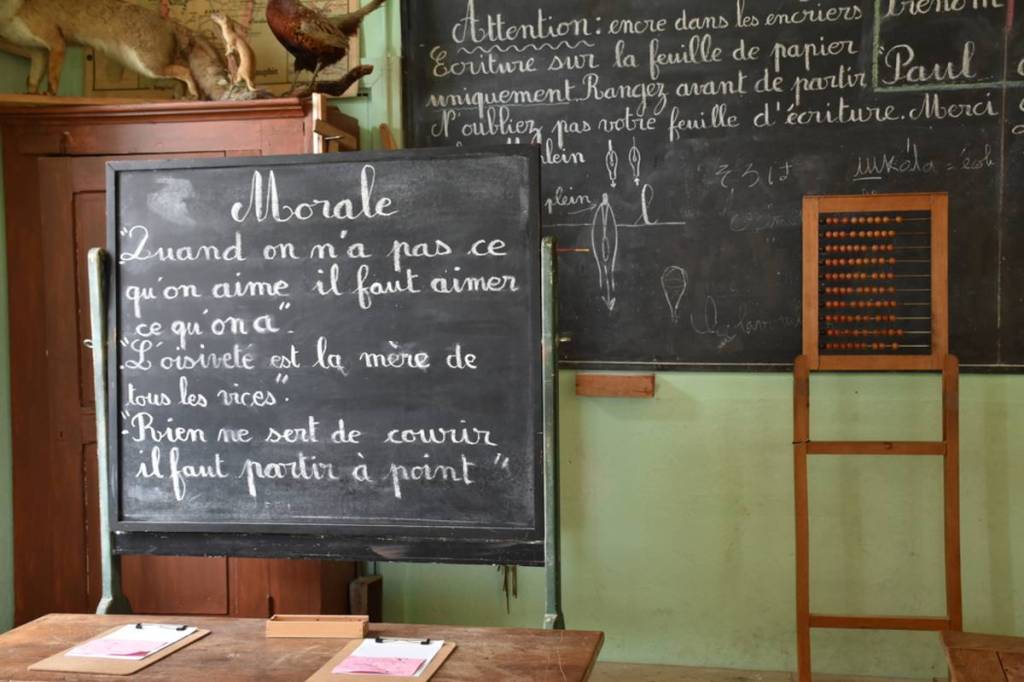 Attention : encre dans les encriers
Ecriture sur la feuille de papier
uniquement. Rangez avant de partir
N'oubliez pas votre feuille d'écriture. Merci
Prénom
Paul
plein
l
Morale
"Quand on n'a pas ce
qu'on aime il faut aimer
ce qu'on a".
"L'oisiveté est la mère de
tous les vices".
"Rien ne sert de courir
il faut partir à point"